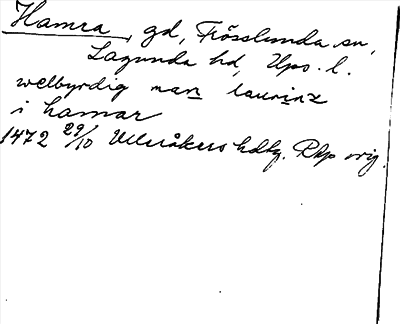 Hamra, gd, Frösslunda sn,
Lagunda hd, Upps. l.
welbyrdig man laurinz
i hamar
1472 29/10 Ulleråkers hdtg. Rkp orig.